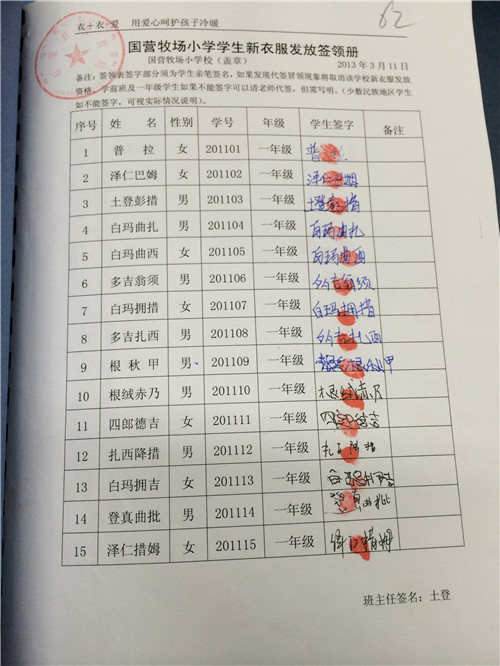 衣+衣·爱 用爱心呵护孩子冷暖
62
国营牧场小学学生新衣服发放签领册
国营牧场小学校（盖章） 2013年3月11日
备注：签领表签字部分须为学生亲笔签名，如果发现代签冒领现象将取消该学校新衣服发放
资格，学前班及一年级学生如果不能签字可以请老师代签，但需写明。（少数民族地区学生
如不能签字，可视实际情况说明）。
序号 姓 名 性别 学号 年级 学生签字 备注
1 普 拉 女 201101 一年级 普
2 泽仁巴姆 女 201102 一年级 泽仁巴姆
3 土登彭措 男 201103 一年级 土登彭措
4 白玛曲扎 男 201104 一年级 白玛曲扎
5 白玛曲西 女 201105 一年级 白玛曲西
6 多吉翁须 男 201106 一年级 多吉翁须
7 白玛拥措 女 201107 一年级 白玛拥措
8 多吉扎西 男 201108 一年级 多吉扎西
9 根秋甲 男、 201109 一年级 根秋甲
10 根绒赤乃 男 201110 一年级 根绒赤乃
11 四郎德吉 女 201111 一年级 四郎德吉
12 扎西降措 男 201112 一年级 扎西降措
13 白玛拥吉 女 201113 一年级
14 登真曲批 男 201114 一年级 登真曲批
15 泽仁措姆 女 201115 一年级
班主任签名：土登